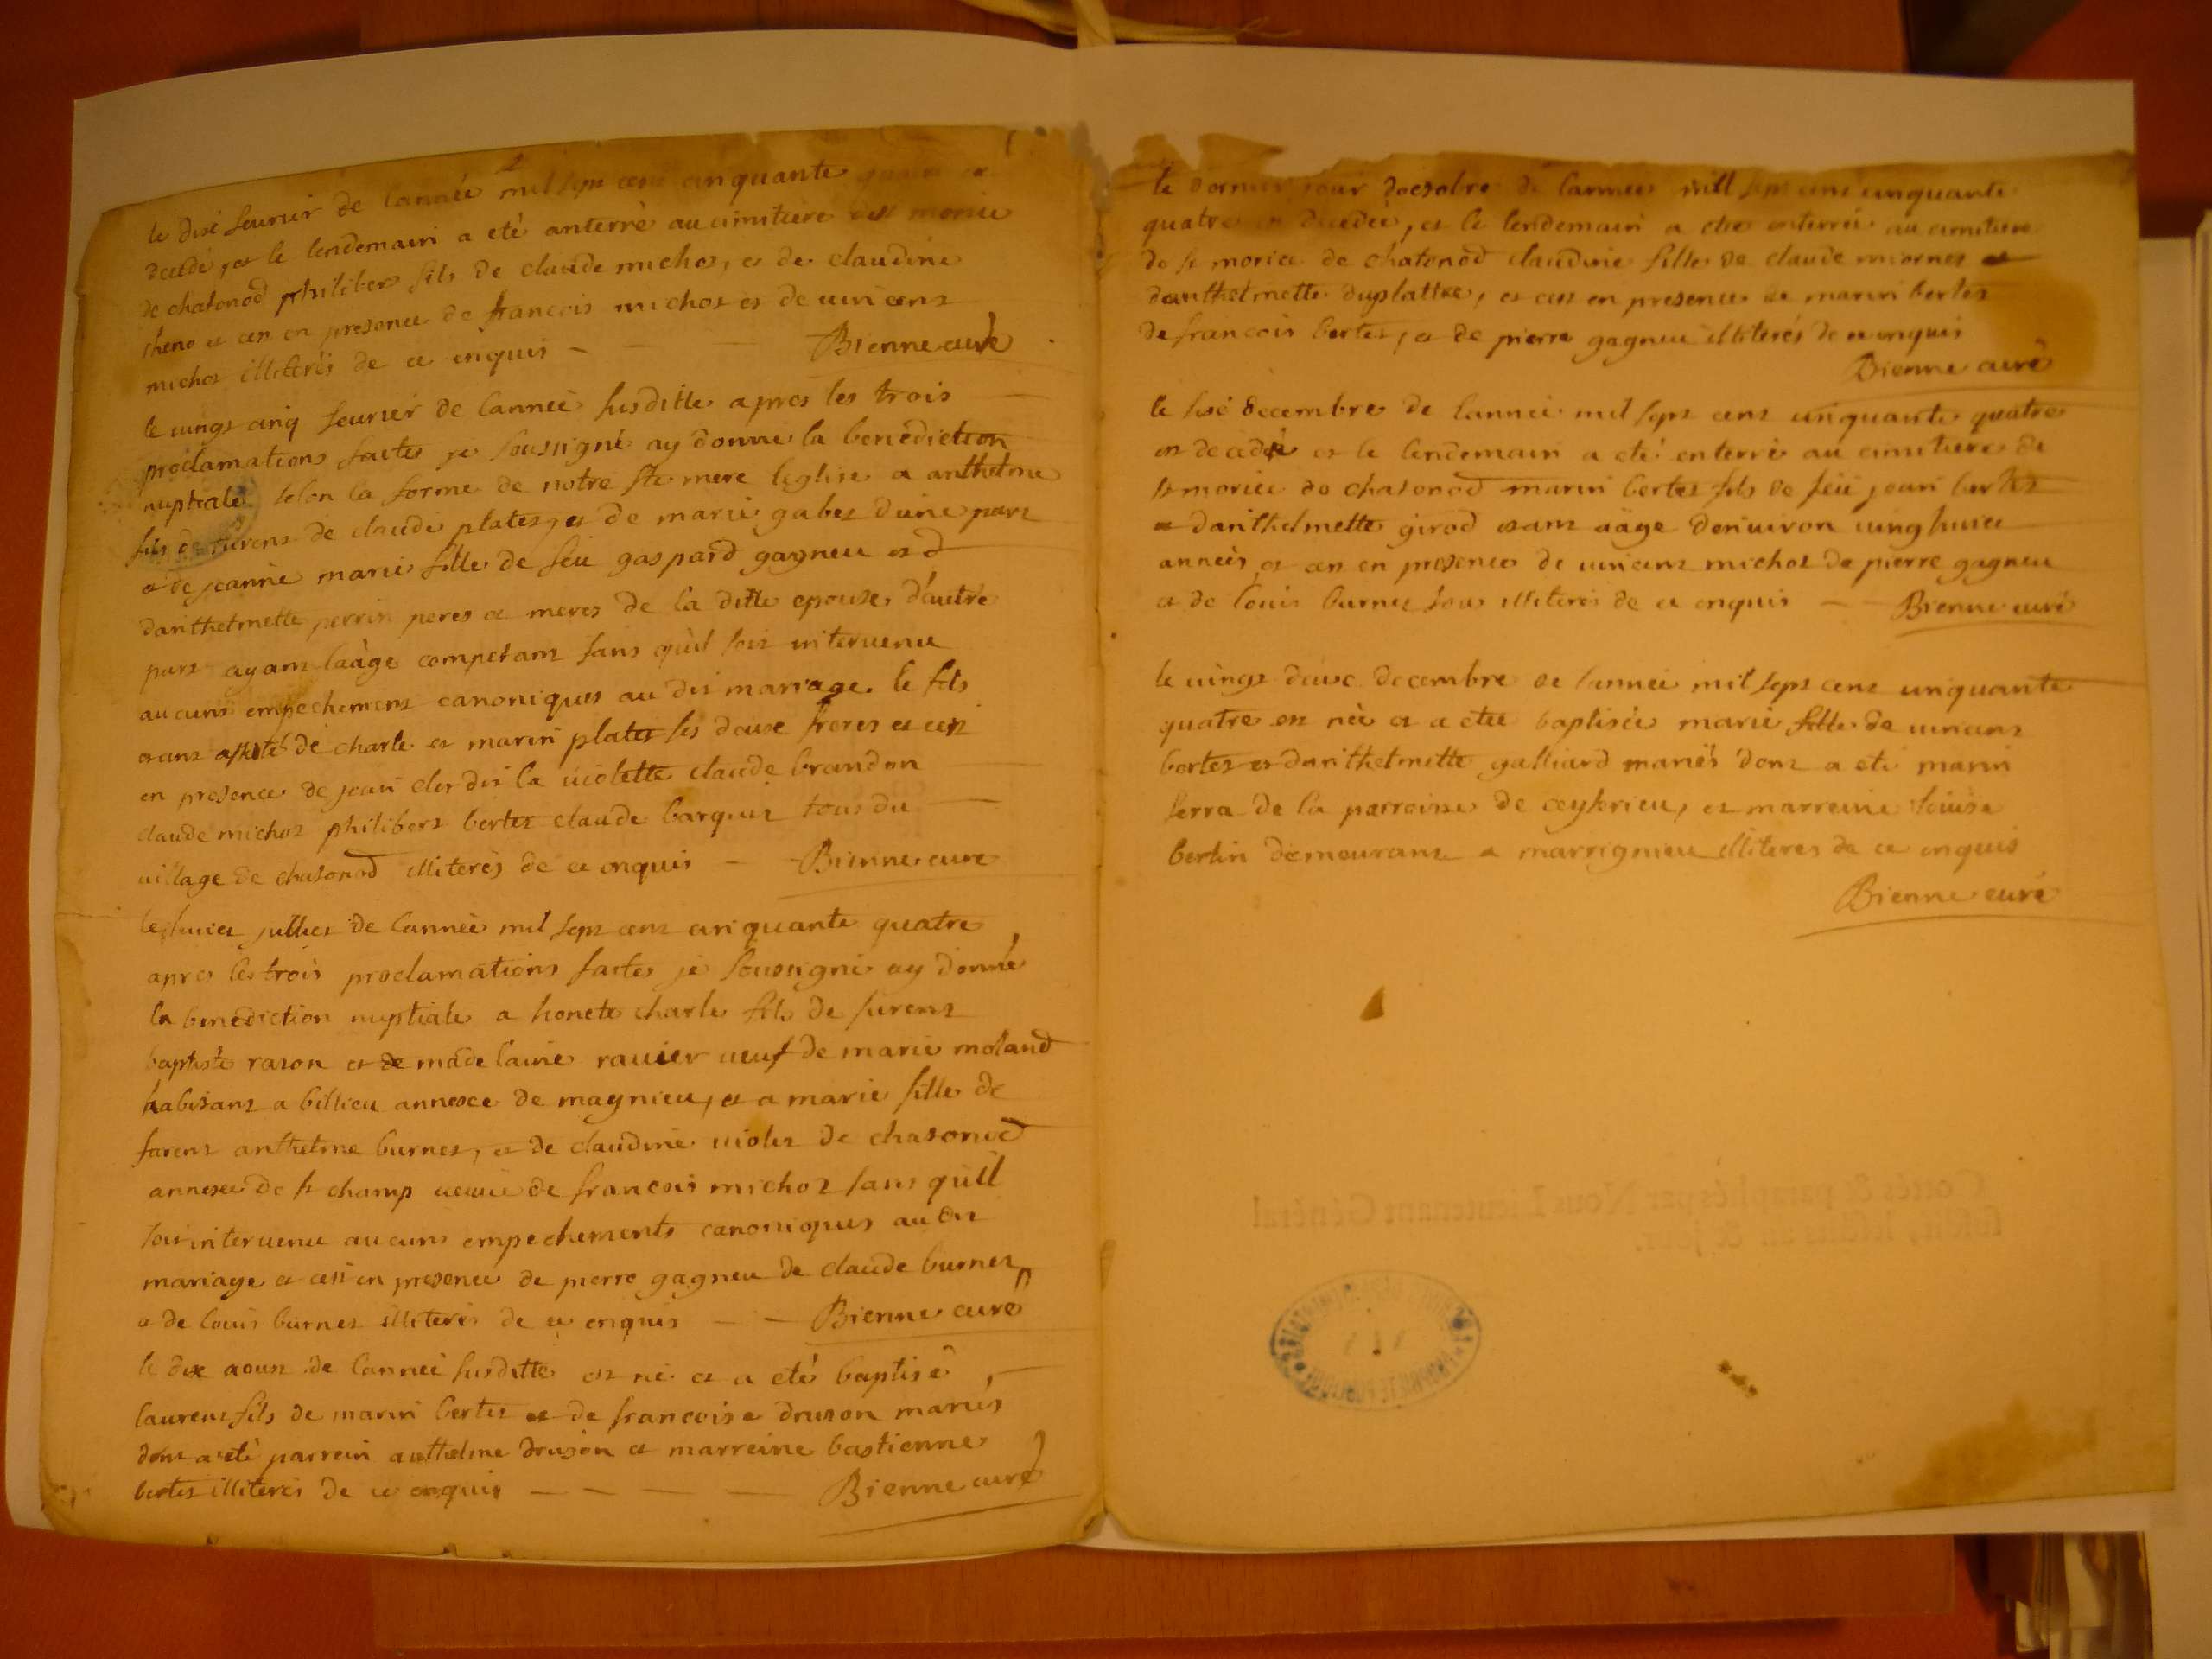 le dixe feurier de lannéé mil sept cent cinquante quatre est
decedé, et le lendemain a eté anterré au cimitiere de st morice
de chatonod philibert fils de claude michot, et de claudine
theno et cen en presence de francois michot et de uincent
michot illiterés de ce enquis Bienne curé
le uingt cinq feurier de lanneé susditte apres les trois
proclamations faites je soussigné ay donné la benediction
nuptiale selon la forme de notre ste mere leglise a anthelme
fils de furent de claude platet, et de marie gabet dune part
et de jeanne marie fille de feu gaspard gagneu et d
danthelmette perrin peres et meres de la ditte epouse, dautre
part ayant laàge competant sans quil soit interuenu
aucuns empechement canoniques au dit mariage. le fils
etant assisté de charle et marin platet ses deuxe freres et cest
en presence de jean clet dit la uiolette claude brandon
claude michot philibert bertet claude barquet tous du
uillage de chatonod illiterés de ce enquis Bienne curé
le huict jullet de lanneé mil sept cent cinquante quatre
apres les trois proclamations faites je soussigné ay donné
la benediction nuptiale a honete charle fils de furent
baptiste raton et de madelaine rauier ueuf de marie moland
habitant a billieu annexce de magnieu, et a marie fille de
furent anthelme burnet, et de claudine uiolet de chatonod
annexce de st champ ueuue de francois michot sans quill
soit interuenu aucuns empechements canoniques au dit
mariage et cest en presence de pierre gagneu de claude burnet
et de louis burnet illiterés de ce enquis Bienne curé
le dix aoust de lanneé susditte est né et a eté baptisé
laurent fils de marin bertet et de francoise druson mariés
dont a eté parrein anthelme druson et marreine bastienne
bertet illiterés de ce enquis Bienne curé
le dernier jour doctobre de lannee mill sept cent cinquante
quatre est decedeé, et le lendemain a eté enterreé au cimitiere
de st morice de chatonod claudine fille de claude miornet et
danthelmette duplattre, et cest en presence de marin bertet
de francois bertet, et de pierre gagneu illiterés de ce enquis
Bienne curé
le sixé decembre de lanneé mil sept cent cinquante quatre
est decedé et le lendemain a eté enterré au cimitiere de
st morice de chatonod marin bertet fils de feu jean bertet
et danthelmette girod etant aàge denuiron uingt huict
anneés, et cest en presence de uincent michot de pierre gagneu
et de louis burnet tous illiterés de ce enquis Bienne curé
le uingt deuxe decembre de lanneé mil sept cent cinquante
quatre est neé et a eteé baptiseé marie fille de uincent
bertet et danthelmette galliard mariés dont a eté marin
serra de la parroisse de ceyserieu, et marreine louise
bertin demeurant a marrignieu illiterés de ce enquis
Bienne curé
Cottés & paraphés par Nous Lieutenant Général